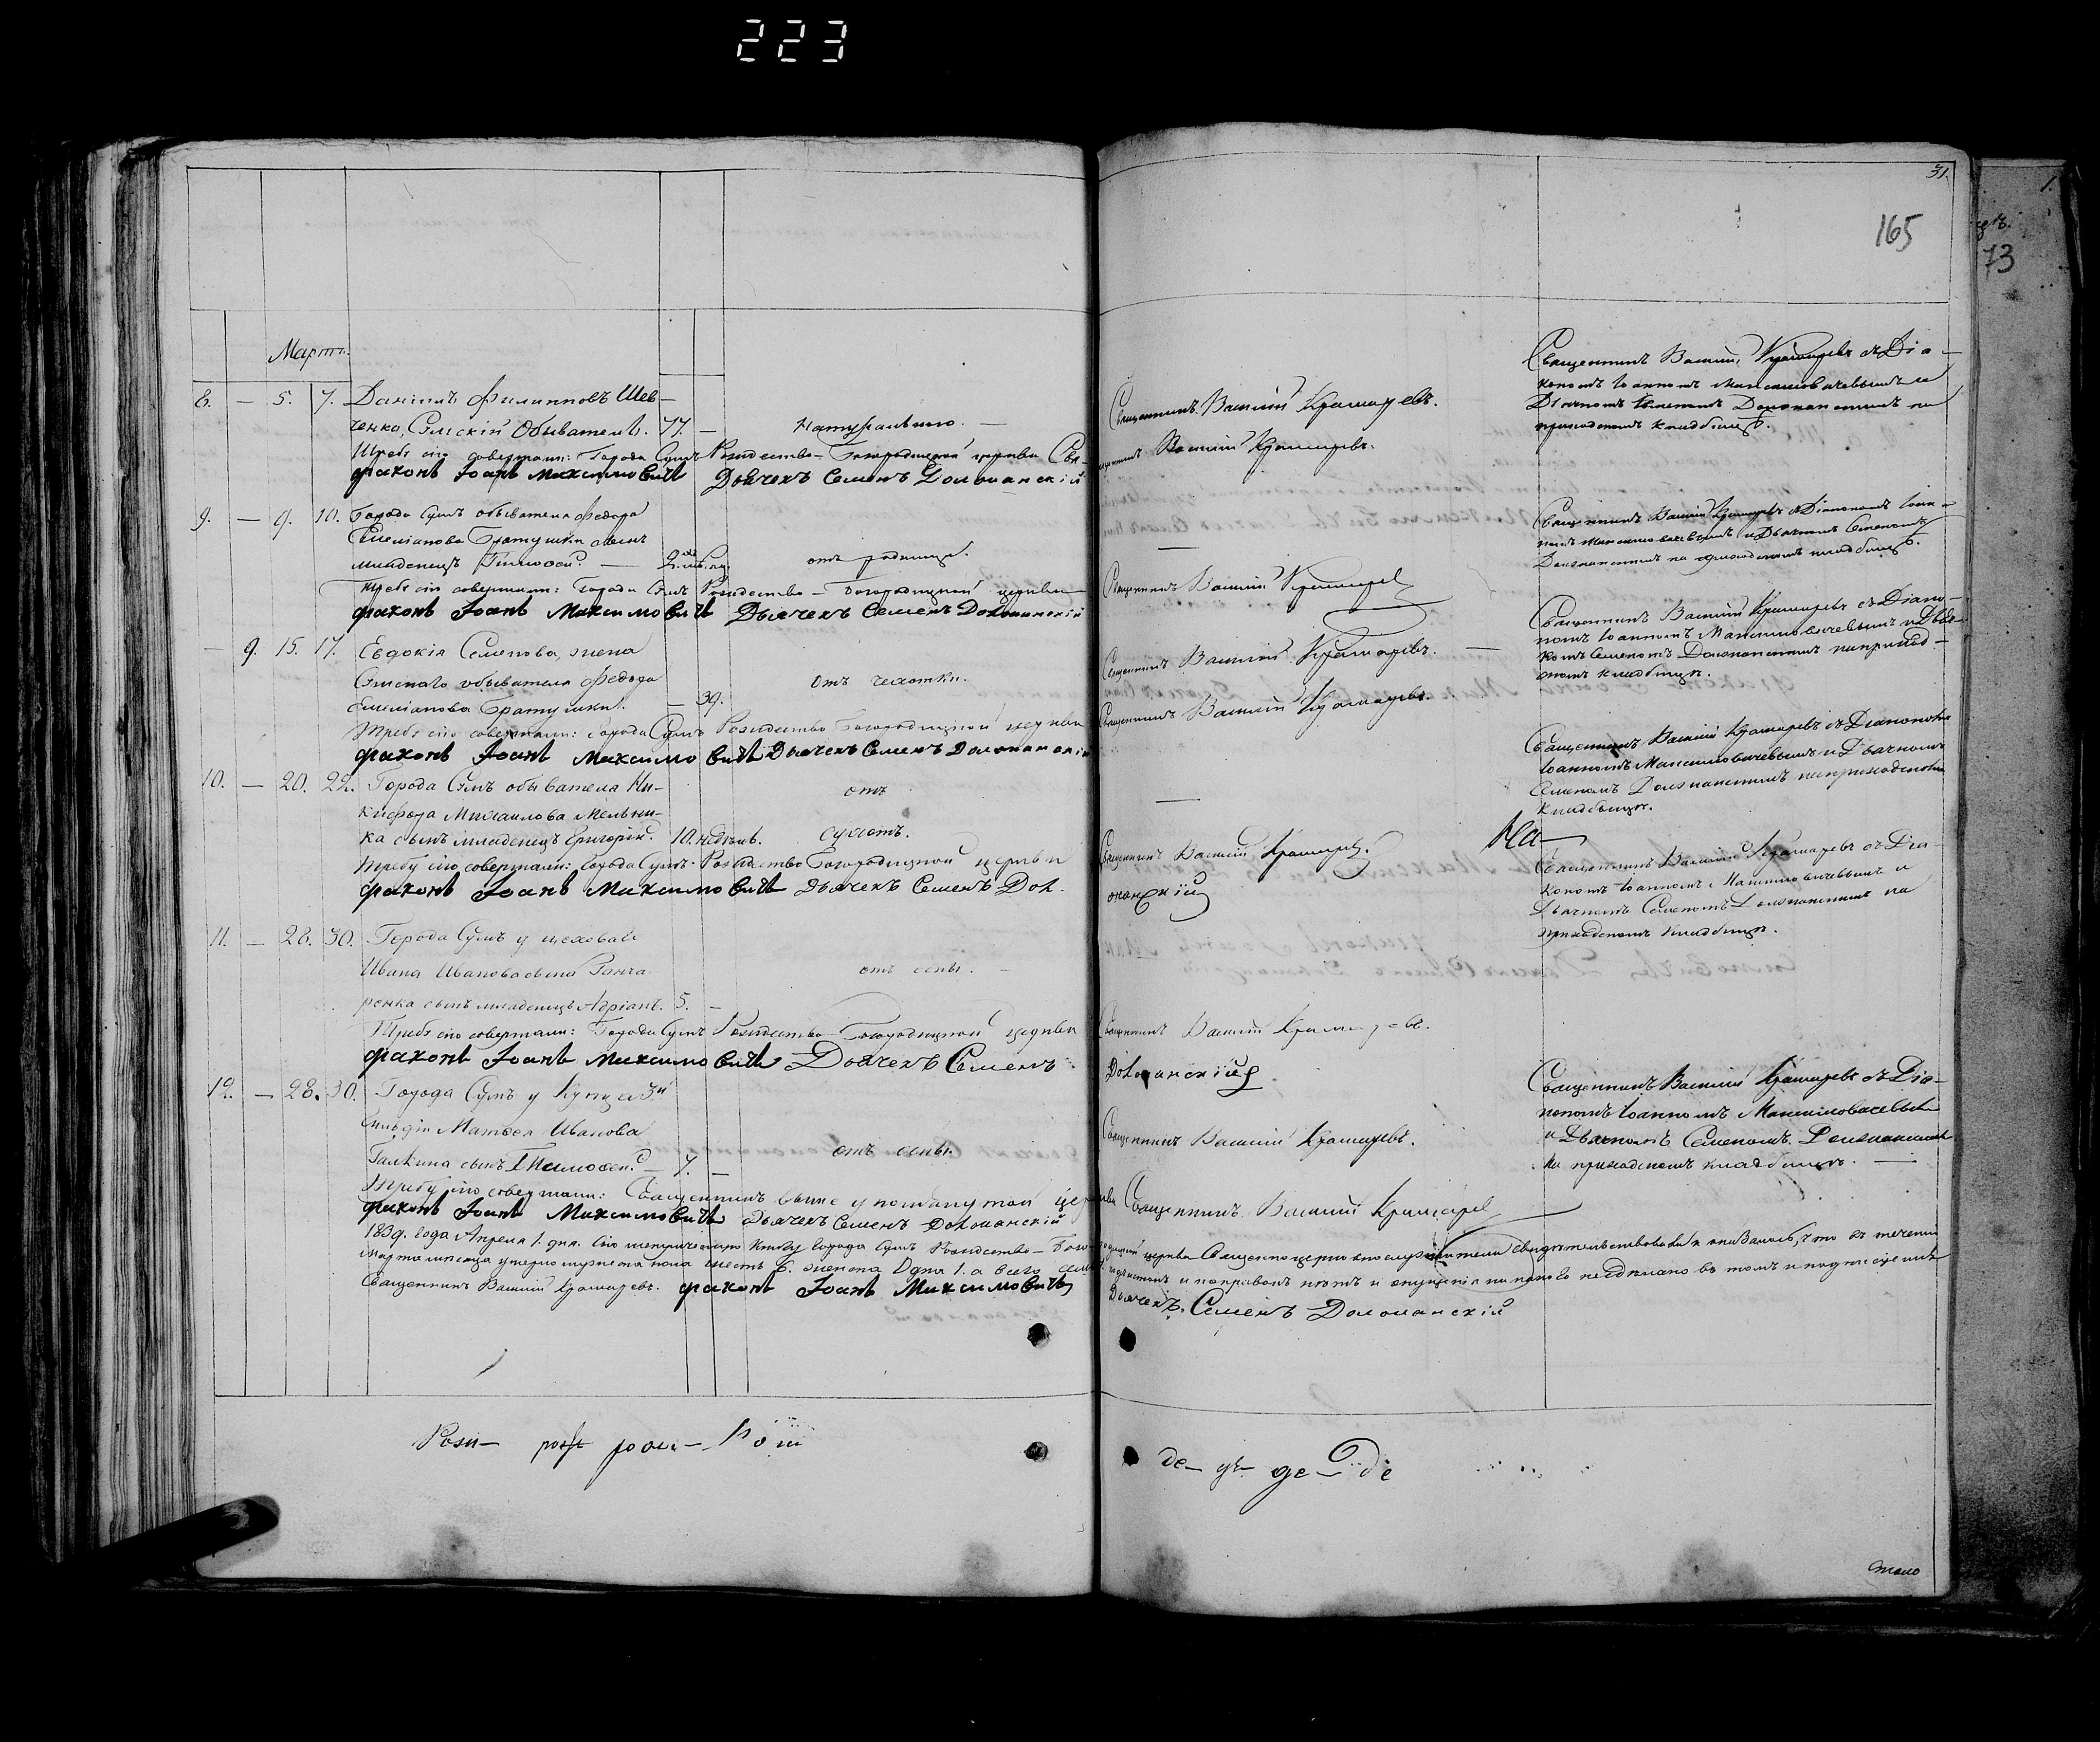 223
31.
165
73
1.
Мартъ.
8. — 5. 7. Даніилъ Филипповъ Шев-
ченко, Сумскій Обыватель. 77. — Натурально. —
Священникъ Василій Крамаревъ.
Священникъ Василій Крамаревъ съ Діа-
кономъ Іоанномъ Максимовичевымъ и
Дьячкомъ Семеномъ Должанскимъ на
приходскомъ кладбищѣ.
Требу сію совершали: Города Сумъ Рождество-Богородицкой церкви Свя-
щенникъ Василій Крамаревъ.
Диаконъ Іоанъ Максимовичъ Дьячекъ Семенъ Должанскій
9. — 9. 10. Города Сумъ обывателя Федора
Емеліанова Братушки сынъ
младенецъ Тимофей. — отъ родимца.
Священникъ Василій Крамаревъ съ Діакономъ Іоан-
номъ Максимовичевымъ и Дьячкомъ Семеномъ
Должанскимъ на приходскомъ кладбищѣ.
Требу сію совершали: Города Сумъ Рождество-Богородицкой церкви
Священникъ Василій Крамарев
Диаконъ Іоанъ Максимовичъ Дьячекъ Семенъ Должанскій
— 9. 15. 17. Евдокія Семенова, жена
Сумскаго обывателя Федора
Емеліанова Братушки. — 39. отъ чахотки.
Священникъ Василій Крамаревъ. —
Священникъ Василій Крамаревъ съ Діако-
номъ Іоанномъ Максимовичевымъ и Дьяч-
комъ Семеномъ Должанскимъ на приход-
скомъ кладбищѣ.
Требу сію совершали: Города Сумъ Рождество Богородицкой церкви
Священникъ Василій Крамаревъ.
Диаконъ Іоанъ Максимовичъ Дьячекъ Семенъ Должанскій
10. — 20. 22. Города Сумъ обывателя Ни-
кифора Михаилова Мельни-
ка сынъ младенецъ Григорій. 10. недѣль. отъ сухотъ.
Священникъ Василій Крамаревъ съ Діакономъ
Іоанномъ Максимовичевымъ и Дьячкомъ
Семеномъ Должанскимъ на приходскомъ
кладбищѣ.
Требу сію совершали: Города Сумъ Рождество Богородицкой церкви
Священникъ Василій Крамарев.
Диаконъ Іоанъ Максимовичъ Дьячекъ Семенъ Дол-
жанскій
11. — 28. 30. Города Сумъ у цеховаго
Ивана Иванова сына Ганча-
ренка сынъ младенецъ Адріанъ. 5. — отъ оспы. —
Священникъ Василій Крамаревъ съ Діа-
кономъ Іоанномъ Максимовичевымъ и
Дьячкомъ Семеномъ Должанскимъ на
приходскомъ кладбищѣ.
Требу сію совершали: Города Сумъ Рождество-Богородицкой церкви
Священникъ Василій Крамаревъ.
Диаконъ Іоанъ Максимовичъ Дьячекъ Семенъ
Должанскій
12. — 28. 30. Города Сумъ у Купца 3й
Гильдіи Матвея Иванова
Галкина сынъ Тимофей. — 7. — отъ оспы.
Священникъ Василій Крамаревъ.
Священникъ Василій Крамаревъ съ Діа-
кономъ Іоанномъ Максимовичевымъ
и Дьячкомъ Семеномъ Должанскимъ
на приходскомъ кладбищѣ. —
Требу сію совершали: Священникъ выше упомянутой церкви Священникъ Василій Крамарев
Диаконъ Іоанъ Максимовичъ Дьячекъ Семенъ Должанскій
1839. года Апреля 1. дня. Сію метрическую книгу Города Сумъ Рождество-Богородицкой церкви Священноцерковнослужители свидѣтельствовали и оказалось, что въ теченіи
Марта мѣсяца умерло мужеска пола шесть 6. женска одна 1. а всего семь и поправокъ нѣтъ и опущенія никакого не сдѣлано въ томъ и подписуемся
Священникъ Василій Крамаревъ. Диаконъ Іоанъ Максимовичъ
Дьячекъ Семенъ Должанскій